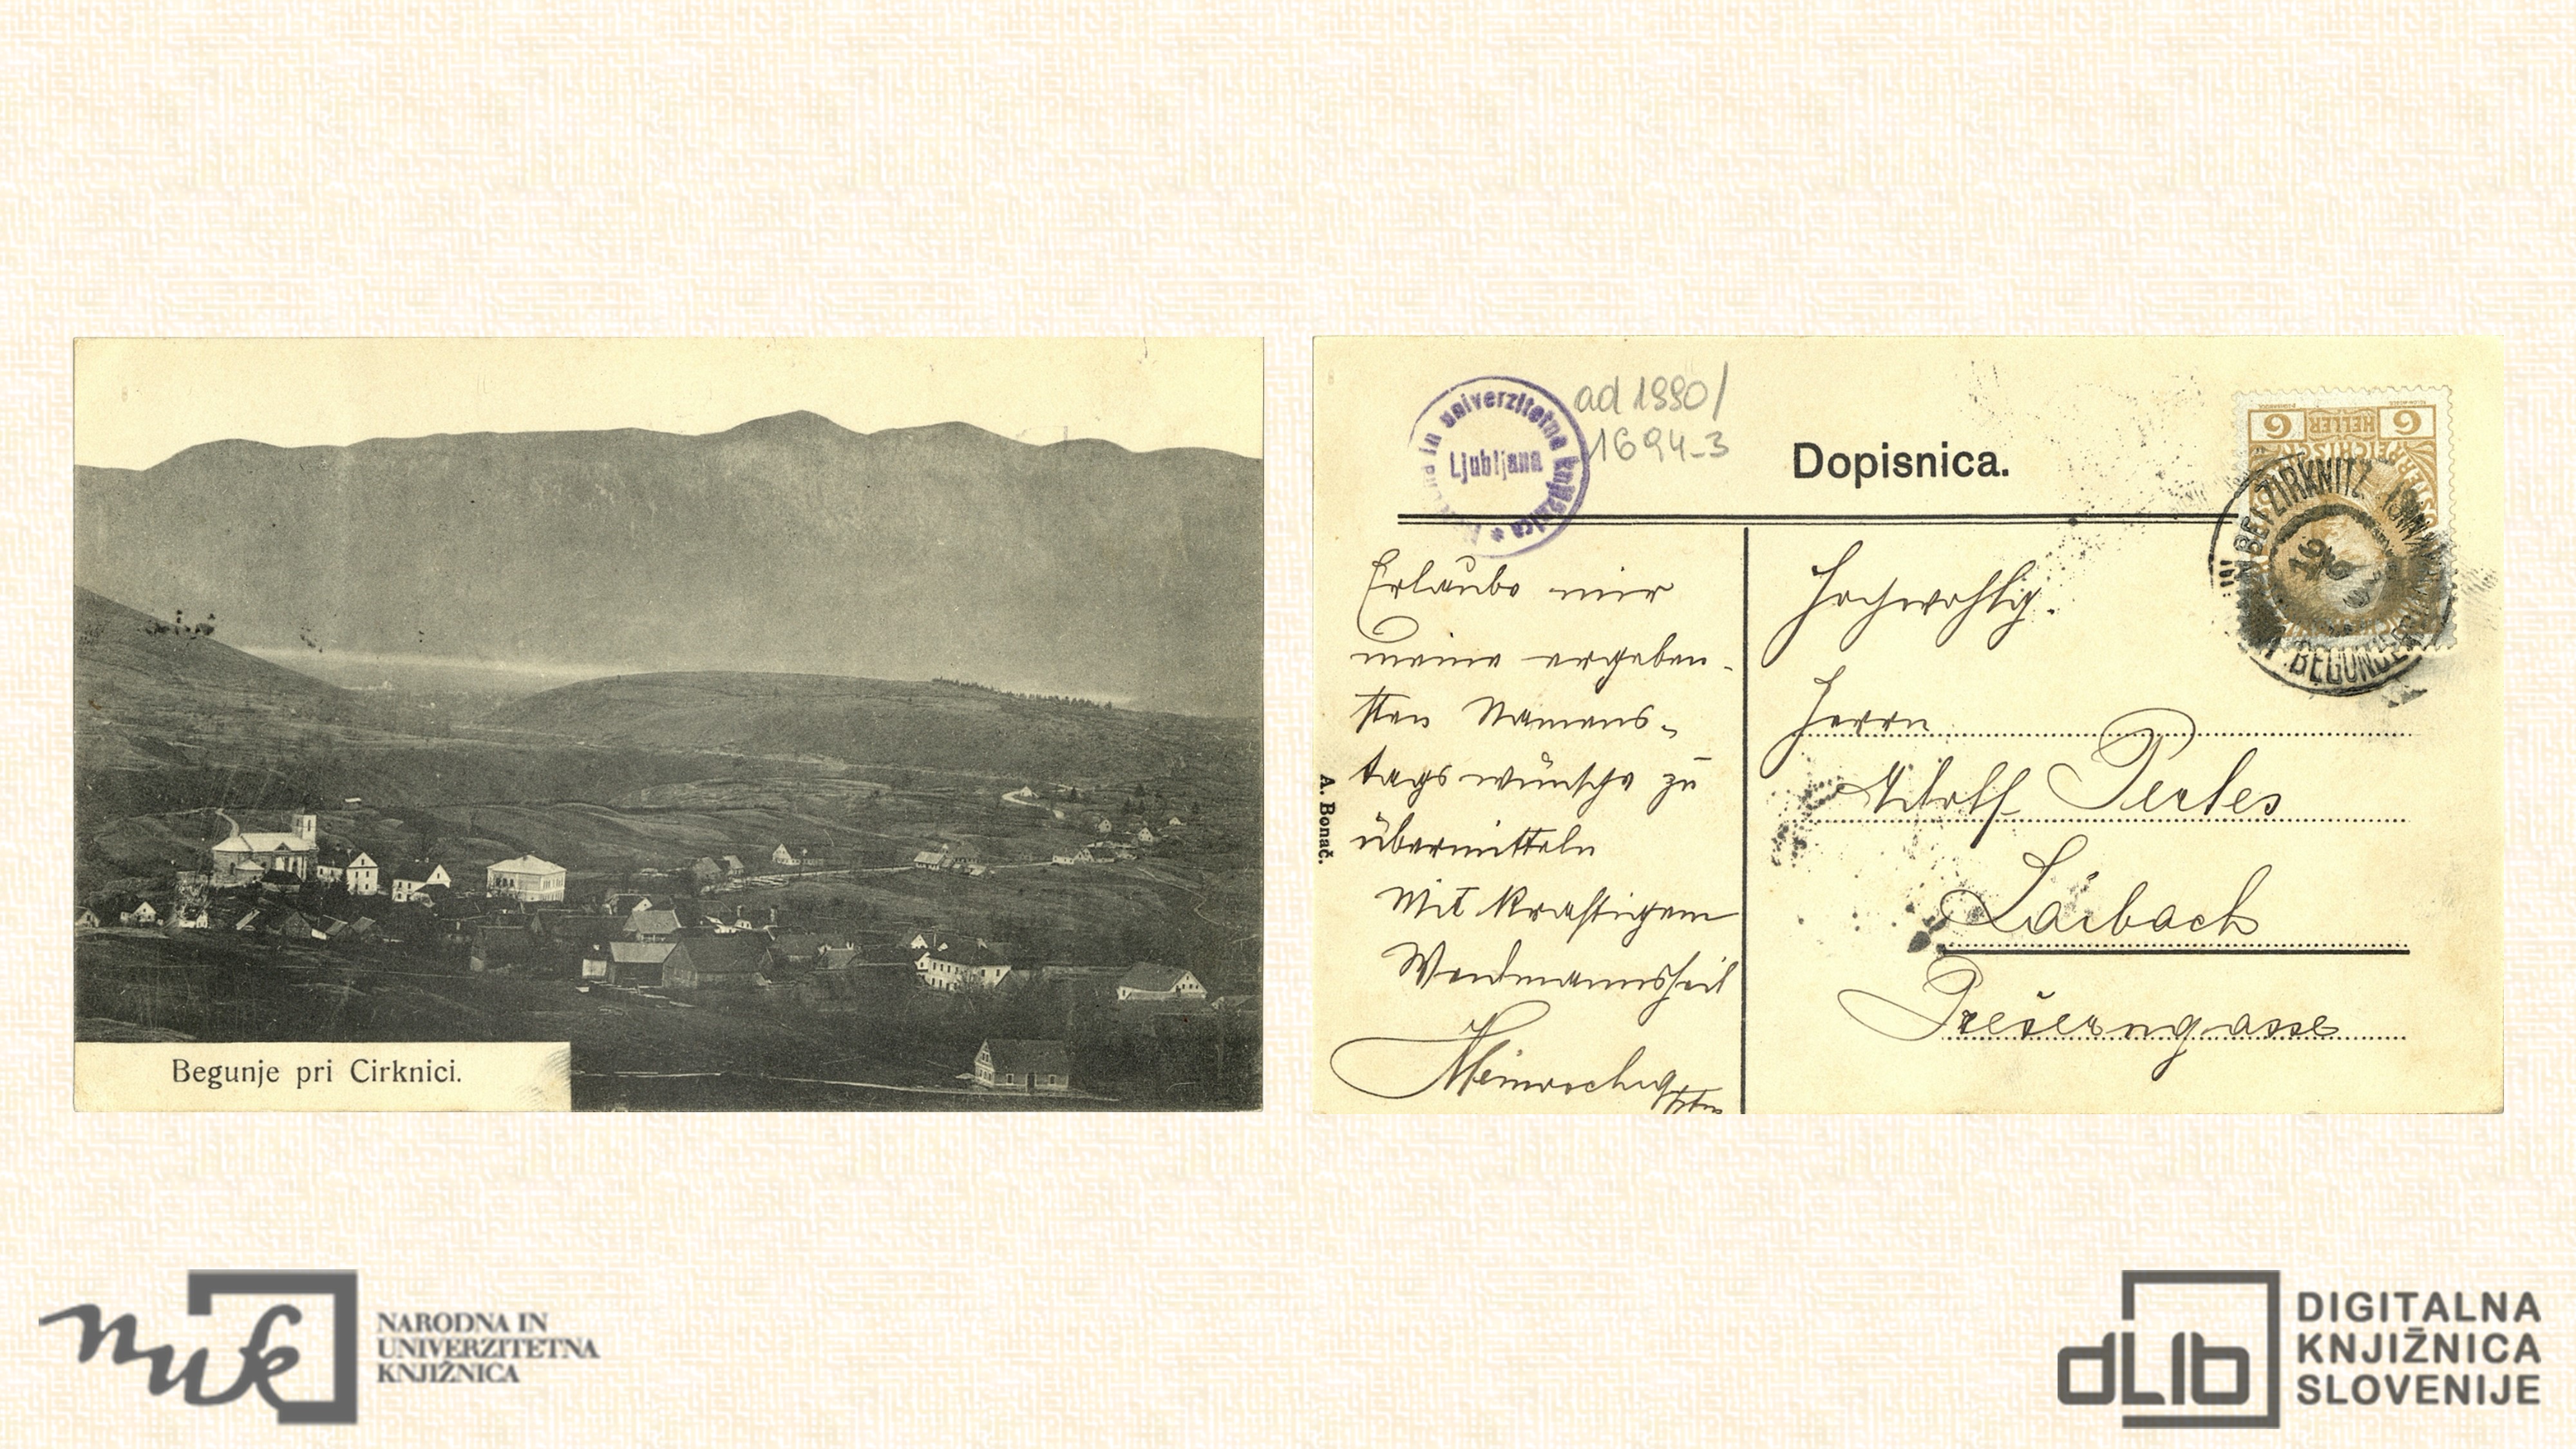 Begunje pri Cirknici.
univerzitetna knjižnica
Ljubljana
ad 1990/
1694-3
Dopisnica.
6 HELLER 6
BEI ZIRKNITZ
BEGUNJE
Erlaube mir
meine ergeben-
sten Namens-
tagswünsche zu
übermitteln
Mit kräftigem
Weidmannsheil
A. Bonač.
Hochwohlg.
Herrn
Adolf Perles
Laibach
Prešerngasse
nuk
NARODNA IN
UNIVERZITETNA
KNJIŽNICA
dLib
DIGITALNA
KNJIŽNICA
SLOVENIJE